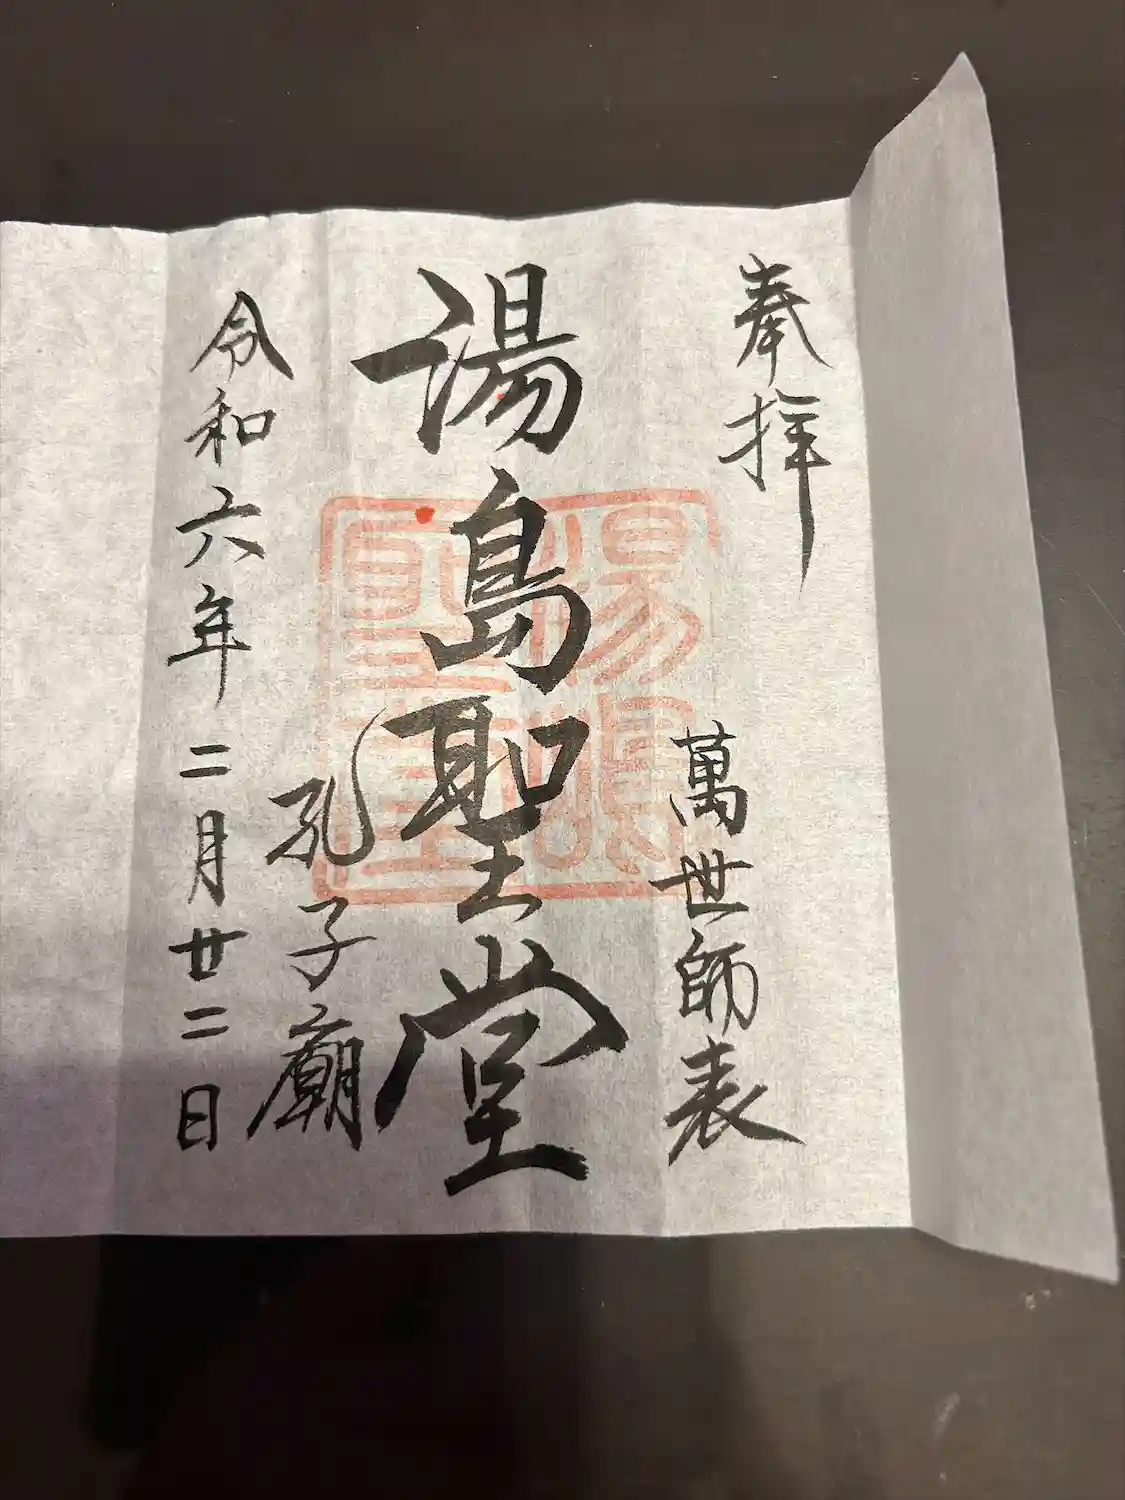 奉拝
萬世師表
湯島聖堂
湯島聖堂
孔子廟
令和六年二月廿二日